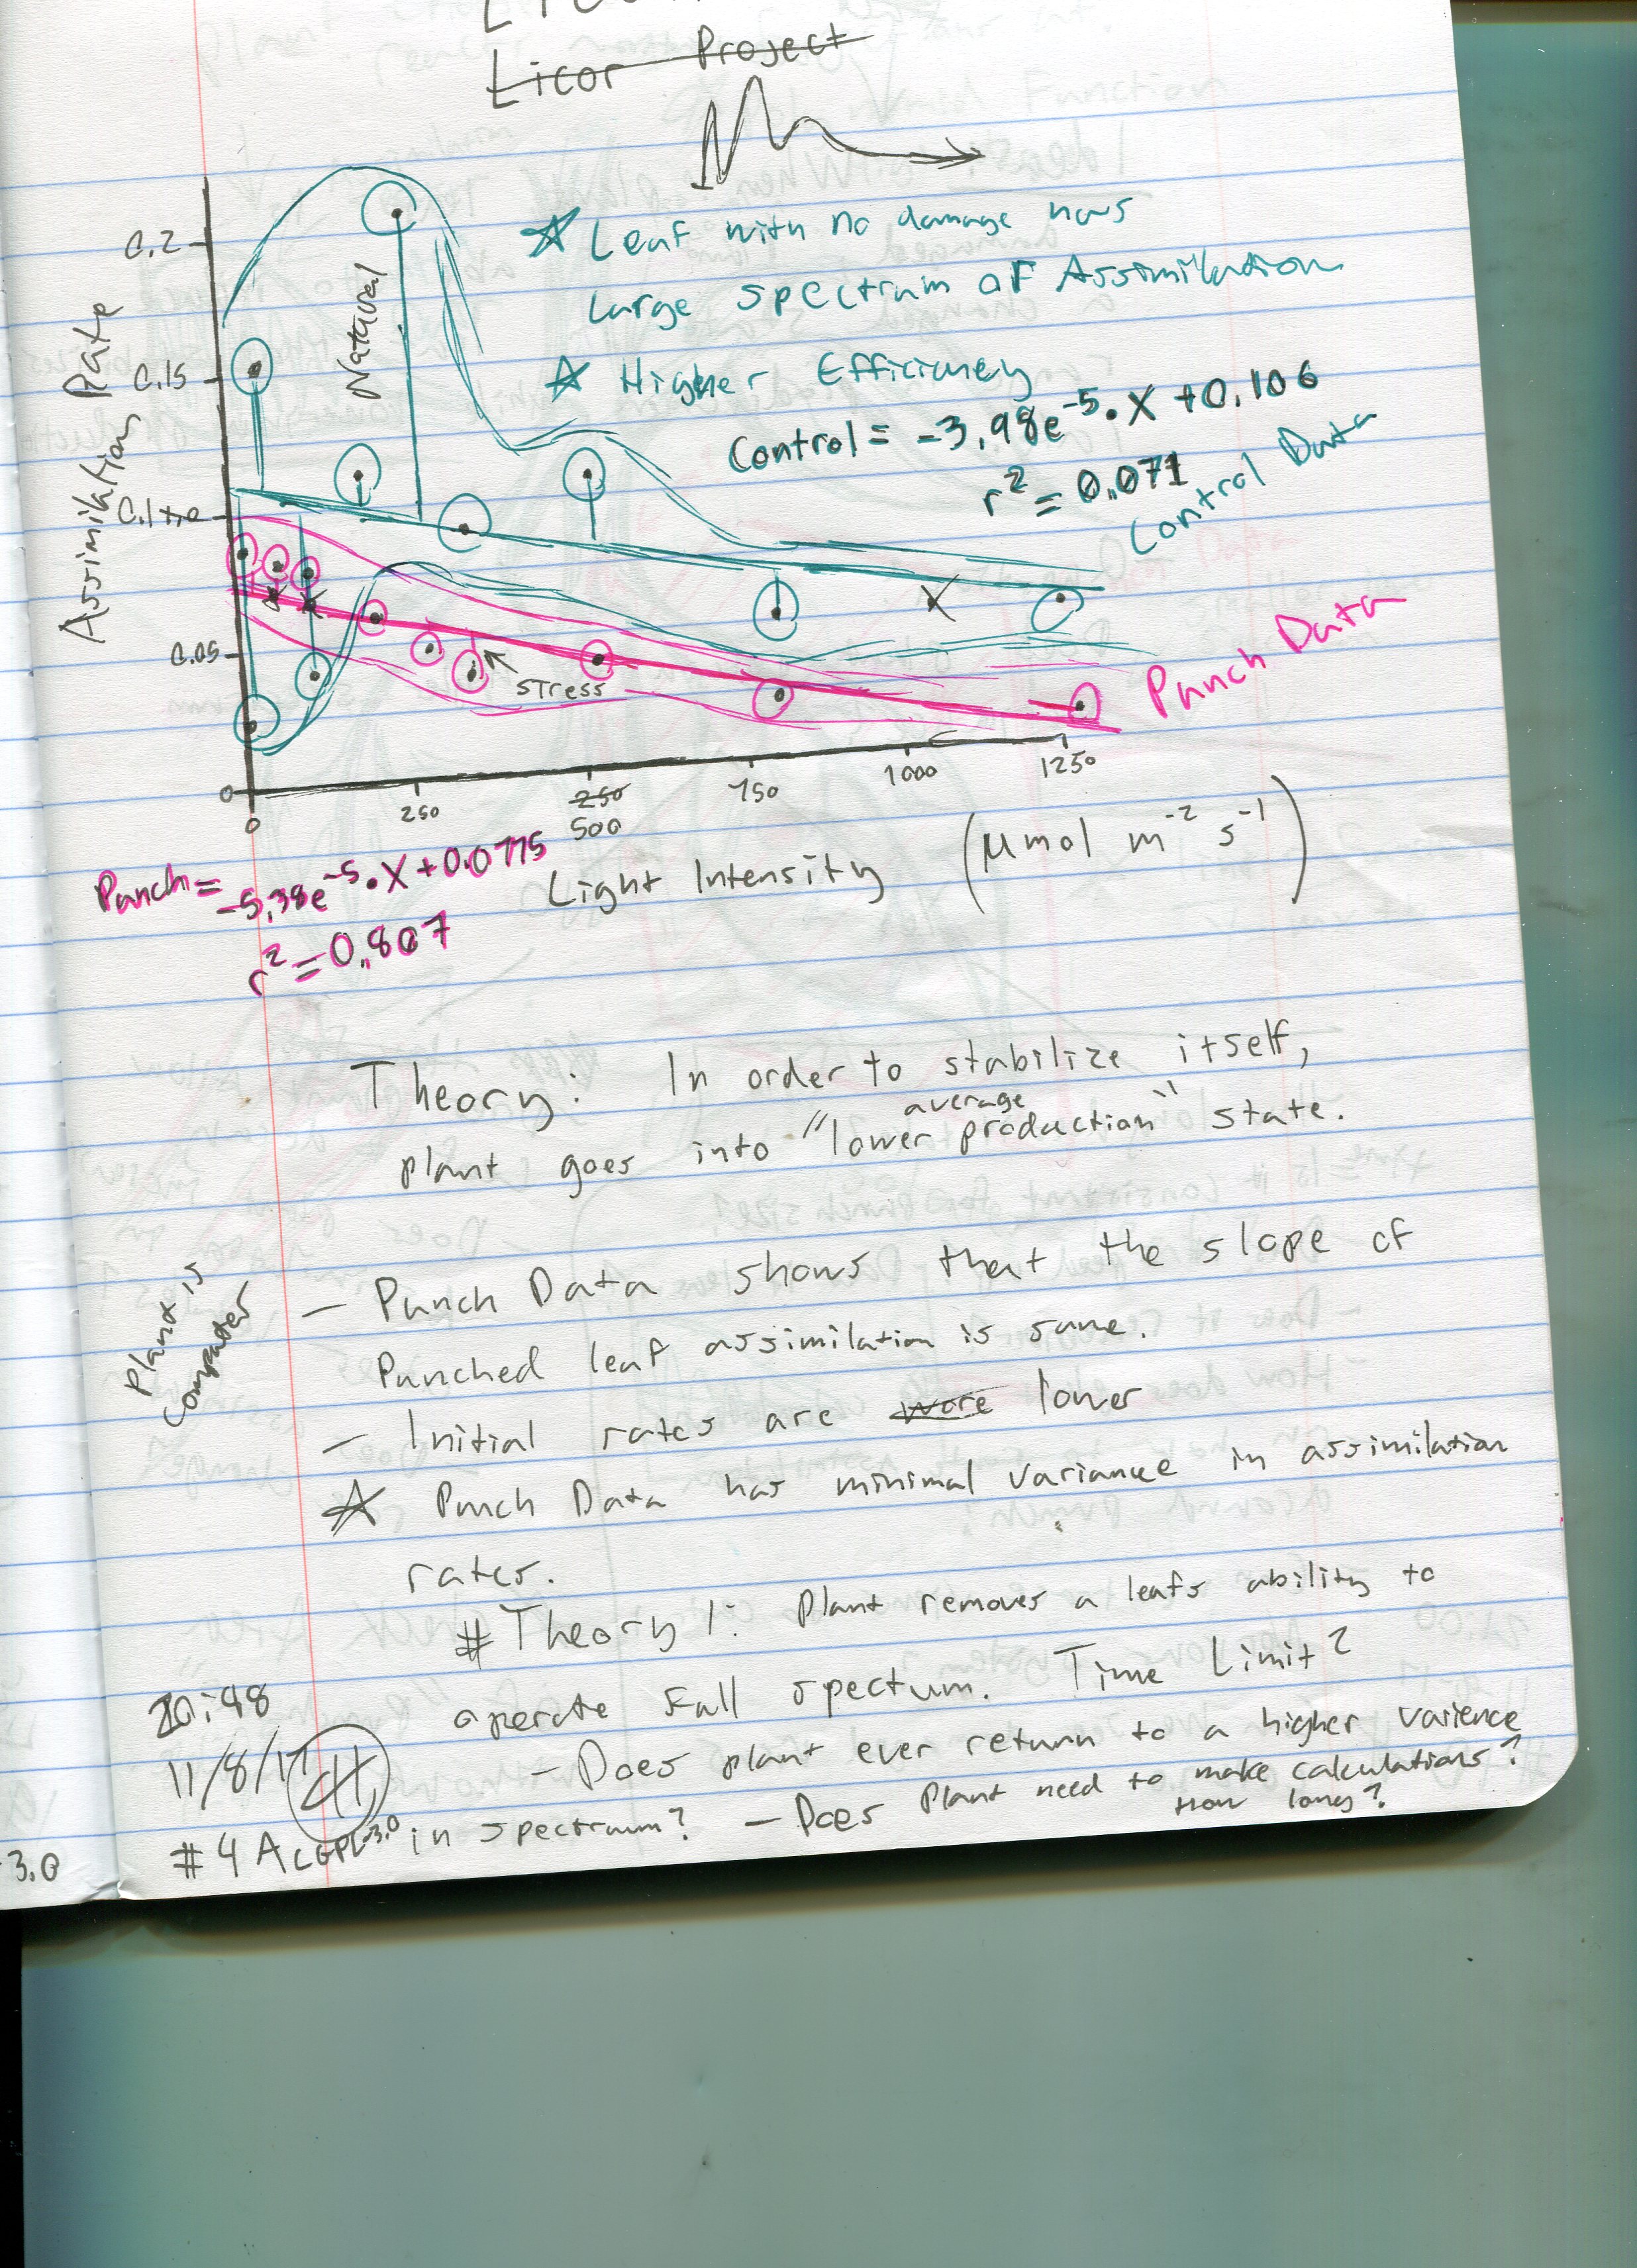 Licor Project
0.2
0.15
0.1
0.05
0
Assimilation Rate
Natural
☆ Leaf with no damage has
large spectrum of Assimilation
☆ Higher Efficiency
Control = -3.98e^-5 · X + 0.106
r² = 0.071
Control Data
stress
Punch Data
0
250
250
500
750
1000
1250
Light Intensity (μmol m^-2 s^-1)
Punch =
-5.38e^-5 · X + 0.0775
r² = 0.807
Theory: In order to stabilize itself,
average
plant goes into "lower production" state.
Plant is
Computer
- Punch Data shows that the slope of
Punched leaf assimilation is same.
- Initial rates are lower
☆ Punch Data has minimal variance in assimilation
rates.
# Theory 1: Plant removes a leafs ability to
operate full spectum. Time Limit?
- Does plant ever return to a higher varience
in spectrum? - Does Plant need to make calculations?
How long?
11/8/17
#4A LGPL-3.0
3.0